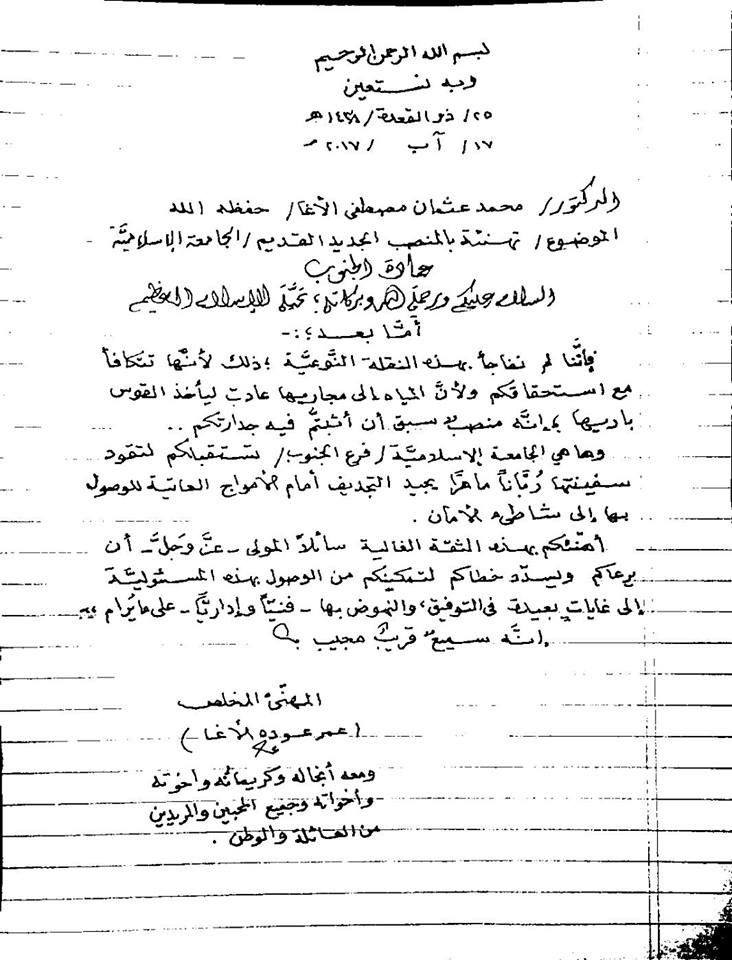 لبسم الله الرحمن الرحيم
وبه نستعين
٢٥/ ذو القعدة /١٤٣٨هـ
١٧/ آب /٢٠١٧م
الدكتور/ محمد عثمان مصطفى الأغا/ حفظه الله
الموضوع/ تهنئة بالمنصب الجديد القديم/ الجامعة الإسلاميَّة
عمادة الجنوب
السلام عليكم ورحمة الله وبركاته؛ تحيَّة الإسلام العظيم
أمَّا بعد؛:-
فإنَّنا لم نفاجأ بهذه النقلة النَّوعيَّة؛ ذلك لأنَّها تتكافأ
مع استحقاقكم ولأنَّ المياه إلى مجاريها عادت ليأخذ القوس
باريها؛ إنَّه منصب سبق أن أثبتمْ فيه جدارتكم ..
وها هي الجامعة الإسلاميَّة/ فرع الجنوب/ تستقبلكم لتقود
سفينتها رُبَّاناً ماهراً يجيد التجديف أمام الأمواج العاتية للوصول
بها إلى شاطىء الأمان .
أهنئكم بهذه الثقة الغالية سائلاً المولى - عزَّ وجلَّ - أن
يرعاكم ويسدّد خطاكم لتمكينكم من الوصول بهذه المسئوليَّة
إلى غايات بعيدة في التوفيق، والنهوض بها - فنيّاً وإداريّاً - على ما يُرام
إنَّه سميعٌ قريبٌ مجيب
المهنّئ المخلص
(عمر عوده الأغا)
ومعه أنجاله وكريماته واخوته
وأخواته وجميع المحبين والمريدين
من العائلة والوطن .